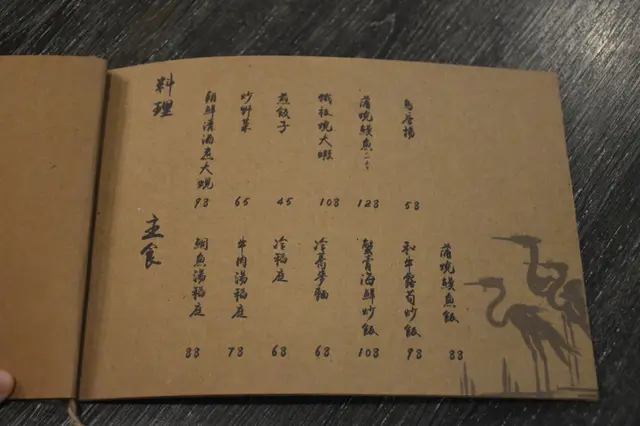 料理
朝鮮清酒煮大蜆
98
炒野菜
65
煎餃子
45
鐵板燒大蝦
108
蒲燒鰻魚
128
鳥唐揚
58
主食
鯛魚湯稻庭
88
牛肉湯稻庭
78
冷稻庭
68
冷蕎麥麵
68
蟹膏海鮮炒飯
108
和牛露筍炒飯
98
蒲燒鰻魚飯
88